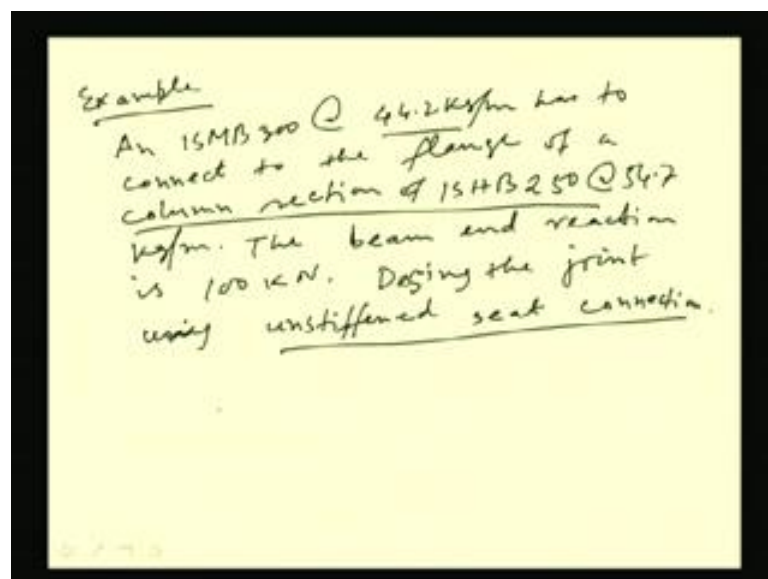 Example
An ISMB 300 @ 44.2 Kg/m has to
connect to the flange of a
column section of ISHB 250 @ 54.7
kg/m. The beam end reaction
is 100 KN. Desing the joint
using unstiffened seat connection.